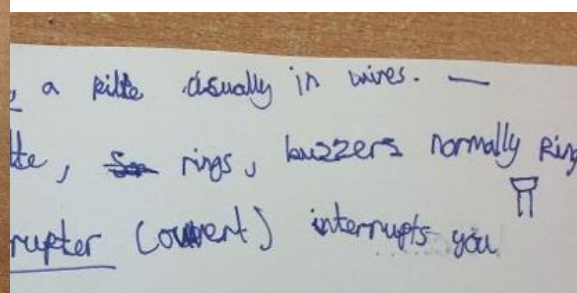 a kilte usually in wires. —
tte, rings, buzzers normally Ring
rupter (current) interrupts you